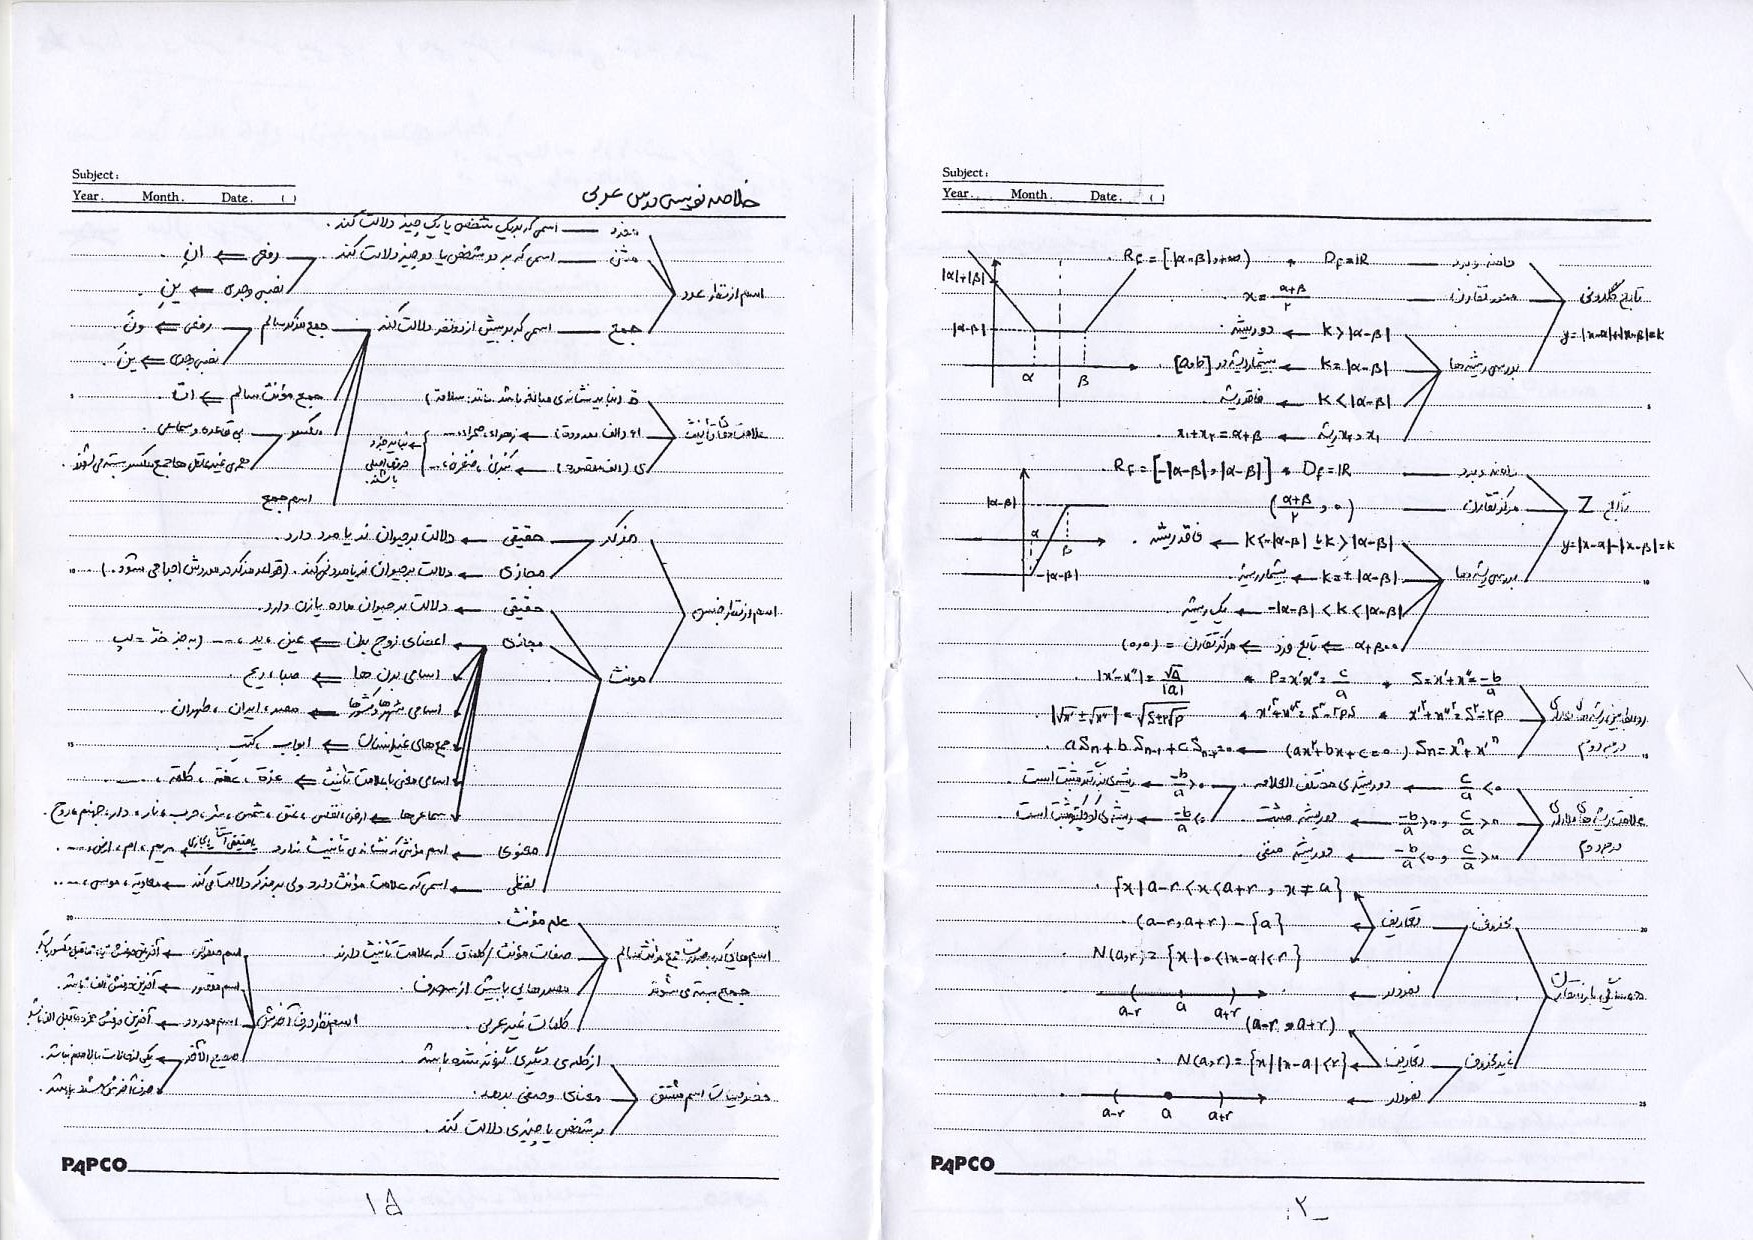 Subject:
Year. Month. Date. ( )
خلاصه نویسی درس عربی
مفرد اسمی که بر یک شخص یا یک چیز دلالت کند.
مثنی اسمی که بر دو شخص یا دو چیز دلالت کند رفعی ⇐ انِ
نصبی و جری ← ینِ
اسم از نظر عدد
جمع اسمی که بر بیش از دو نفر دلالت کند جمع مذکر سالم رفعی ⇐ ونَ
نصبی و جری ⇐ ینَ
جمع مؤنث سالم ⇐ ات
مکسر بی قاعده و سماعی
جمع غیر عاقل ها جمع مکسر بسته می شوند.
اسم جمع
علامت های تأنیث
ة (نباید نشانه ی مبالغه باشد مانند: علامة)
اء (الف ممدوده) ← زهراء، صحراء، ...
ی (الف مقصوره) ← کبری، صغری، ... نباید جزء حروف اصلی باشند.
اسم از نظر جنس
مذکر حقیقی ← دلالت بر حیوان نر یا مرد دارد.
مجازی ← دلالت بر حیوان نر یا مرد نمی کند. (قواعد مذکر در موردش اجرا می شود.)
مؤنث
حقیقی ← دلالت بر حیوان ماده یا زن دارد.
مجازی اعضای زوج بدن ⇐ عین، ید، ... (به جز خدّ = لپ
اسامی ها ⇐ صبا، ریح.
اسامی شهرها و کشورها ← مصر، ایران، طهران.
جمع های غیر انسان ⇐ ابواب، کتب.
اسامی معنی با علامت تأنیث ⇐ عزة، عفّة، کلمة، ...
سماعی ها ⇐ ارض، نفس، شمس، حرب، نار، دار، جهنم، روح.
معنوی ← اسم مؤنثی که نشانه ی تأنیث ندارد مریم، ام، ارض، ...
لفظی ← اسمی که علامت مؤنث دارد ولی بر مذکر دلالت می کند ← معاویة، موسی، ...
اسم هایی که به صورت جمع مؤنث سالم جمع بسته می شوند
علم مؤنث.
صفات مؤنث / کلماتی که علامت تأنیث دارند.
مصدرهایی با بیش از سه حرف.
کلمات غیر عربی.
اسم از نظر حرف آخرش
اسم منقوص ← آخرین حرفش ی، ماقبل مکسور باشد
اسم مقصور ← آخرین حرفش الف باشد.
اسم ممدود ← آخرین حرفش همزه، ماقبل الف باشد
صحیح الآخر ← یکی از حالات بالا هم نباشد.
خصوصیات اسم مشتق
از کلمه ی دیگری گرفته شده باشد
معنای وصفی بدهد.
بر شخص یا چیزی دلالت کند.
PAPCO
۱۵
Subject:
Year. Month. Date. ( )
تابع گلدونی y=|x-α|+|x-β|=k
دامنه و برد Df=IR , Rf=[|α-β|,+∞)
محور تقارن x=α+β/۲
بررسی ریشه ها
k>|α-β| ← دو ریشه
k=|α-β| ← بیشمار ریشه در [a,b]
k<|α-β| ← فاقد ریشه.
x₁, x₂ ریشه ← x₁+x₂=α+β
|α|+|β|
|α-β|
α β
تابع Z y=|x-α|-|x-β|=k
دامنه و برد Df=IR , Rf=[-|α-β|,|α-β|]
مرکز تقارن (α+β/۲ , ۰)
بررسی ریشه ها
k<-|α-β| یا k>|α-β| ← فاقد ریشه.
k=±|α-β| ← بیشمار ریشه.
-|α-β|<k<|α-β| ← یک ریشه
α+β=۰ ⇐ تابع فرد ⇐ مرکز تقارن = (۰,۰)
|α-β|
α
β
-|α-β|
روابط بین ریشه های معادله ی درجه دوم
S=x'+x''=-b/a , P=x'x''=c/a , |x'-x''|=√Δ/|a|
x'²+x''²=S²-۲P , x'³+x''³=S³-۳PS , |√x'±√x''|=√S±۲√P
Sn=x'ⁿ+x''ⁿ (ax²+bx+c=۰) ← aSn+bSn-1+cSn-2=۰
علامت ریشه های معادله ی درجه دوم
c/a<۰ ← دو ریشه ی مختلف العلامه. -b/a>۰ ← ریشه ی بزرگتر مثبت است
c/a>۰ , -b/a>۰ ← دو ریشه مثبت -b/a<۰ ← ریشه ی کوچکتر مثبت است.
c/a>۰ , -b/a<۰ ← دو ریشه منفی.
همسایگی با مرکز
محذوف
تعاریف
{x|a-r<x<a+r, x≠a}
(a-r,a+r)-{a}
N(a,r)={x|۰<|x-a|<r}
نمودار ←
a-r a a+r
غیر محذوف
تعاریف
(a-r,a+r)
N(a,r)={x||x-a|<r}
نمودار ←
a-r a a+r
PAPCO
۲